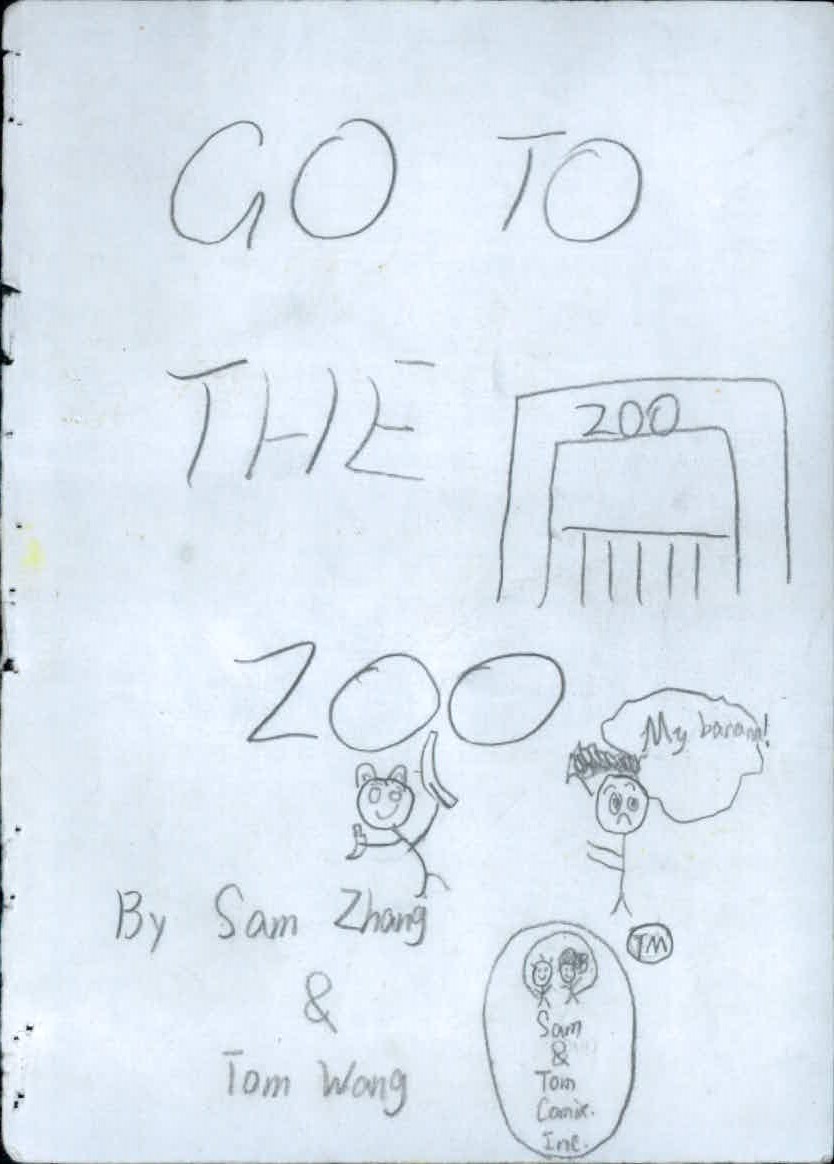 GO TO
THE
ZOO
ZOO
My banana!
By Sam Zhang
&
Tom Wang
TM
Sam
&
Tom
Comix.
Inc.